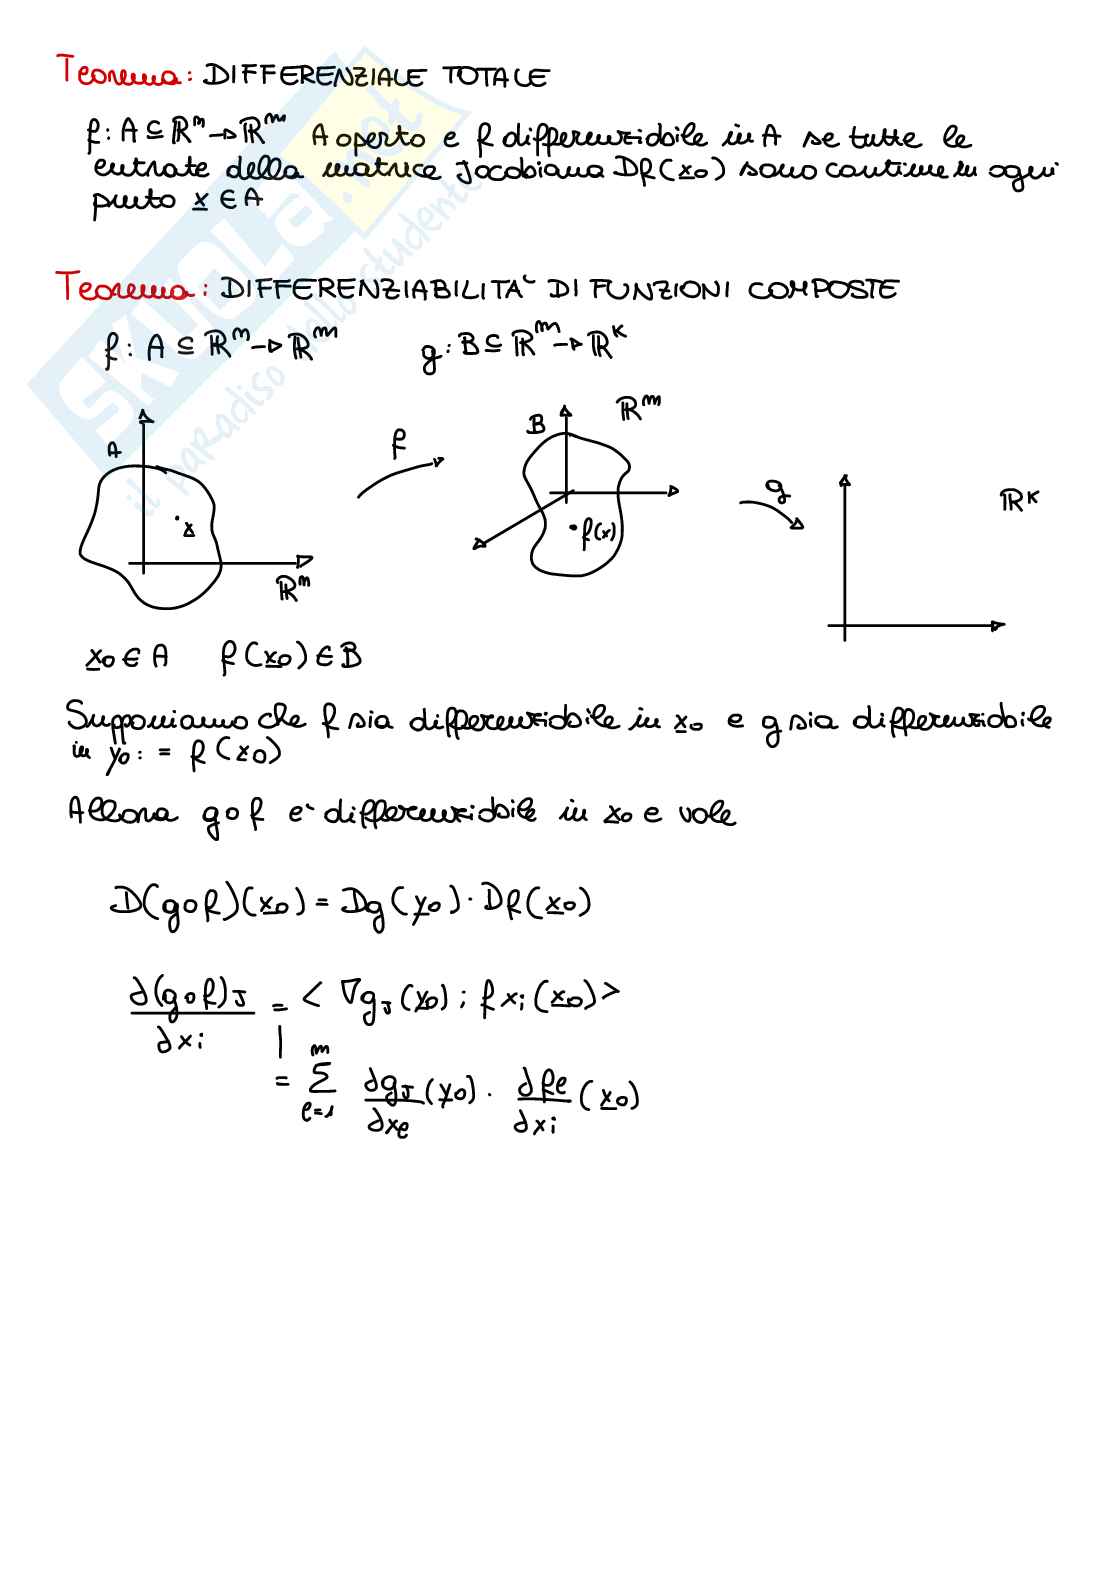 Teorema: DIFFERENZIALE TOTALE
f: A ⊆ ℝⁿ → ℝᵐ A aperto e f differenziabile in A se tutte le
entrate della matrice Jacobiana Df(x₀) sono continue in ogni
punto x ∈ A
Teorema: DIFFERENZIABILITA' DI FUNZIONI COMPOSTE
f: A ⊆ ℝⁿ → ℝᵐ g: B ⊆ ℝᵐ → ℝᴷ
A f B ℝᵐ
x ℝⁿ f(x) g ℝᴷ
x₀ ∈ A f(x₀) ∈ B
Supponiamo che f sia differenziabile in x₀ e g sia differenziabile
in y₀ := f(x₀)
Allora g∘f è differenziabile in x₀ e vale
D(g∘f)(x₀) = Dg(y₀) · Df(x₀)
∂(g∘f)_J / ∂x_i = < ∇g_J(y₀) ; f x_i(x₀) >
= Σ_{l=1}^{m} ∂g_J/∂x_l (y₀) · ∂f_l/∂x_i (x₀)
SKUOLA.net
il paradiso dello studente